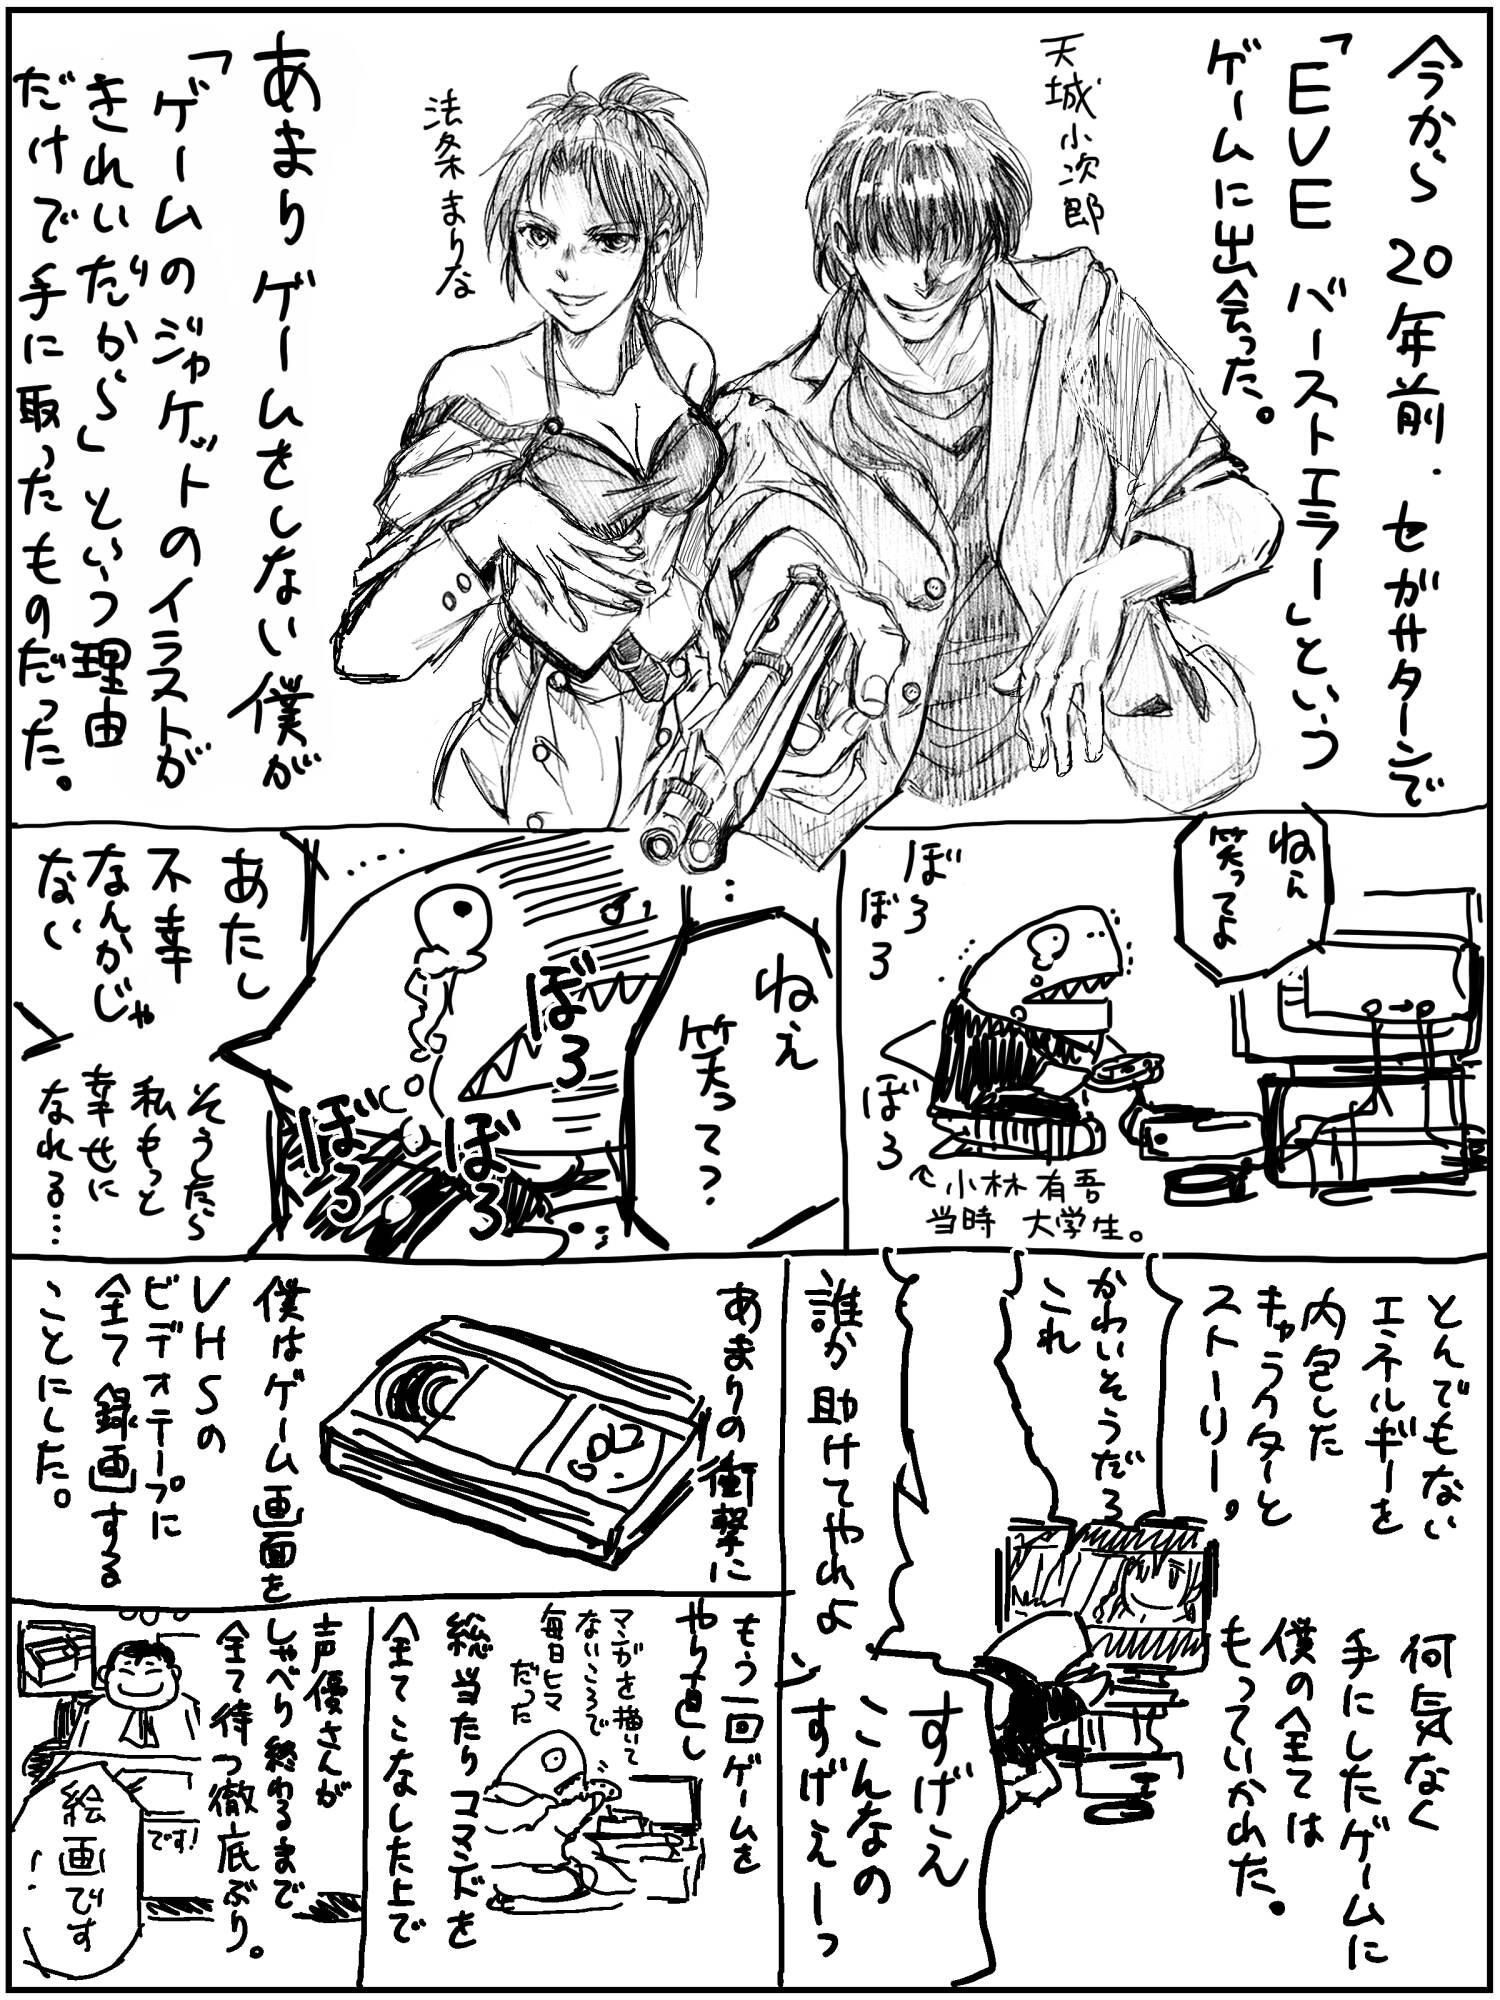 今から20年前.セガサターンで
「EVE バーストエラー」という
ゲームに出会った。
天城小次郎
法条まりな
あまりゲームをしない僕が
「ゲームのジャケットのイラストが
きれいだから」という理由
だけで手に取ったものだった。
ねぇ
笑ってよ
ぼろ
ぼろ
ぼろ
←小林有吾
当時 大学生。
ねえ
笑って?
ぼろ
ぼろ
ぼろ
あたし
不幸
なんかじゃ
ない
そうしたら
私もっと
幸せに
なれる…
とんでもない
エネルギーを
内包した
キャラクターと
ストーリー。
かわいそうだろ
これ
誰か助けてやれよ
何気なく
手にしたゲームに
僕の全ては
もっていかれた。
すげえ
こんなの
すげえーっ
あまりの衝撃に
僕はゲーム画面を
VHSの
ビデオテープに
全て録画する
ことにした。
もう一回ゲームを
やり直し
マンガを描いて
ないころで
毎日ヒマ
だった
総当たりコマンドを
全てこなした上で
声優さんが
しゃべり終わるまで
全て待つ徹底ぶり。
です!
絵画です